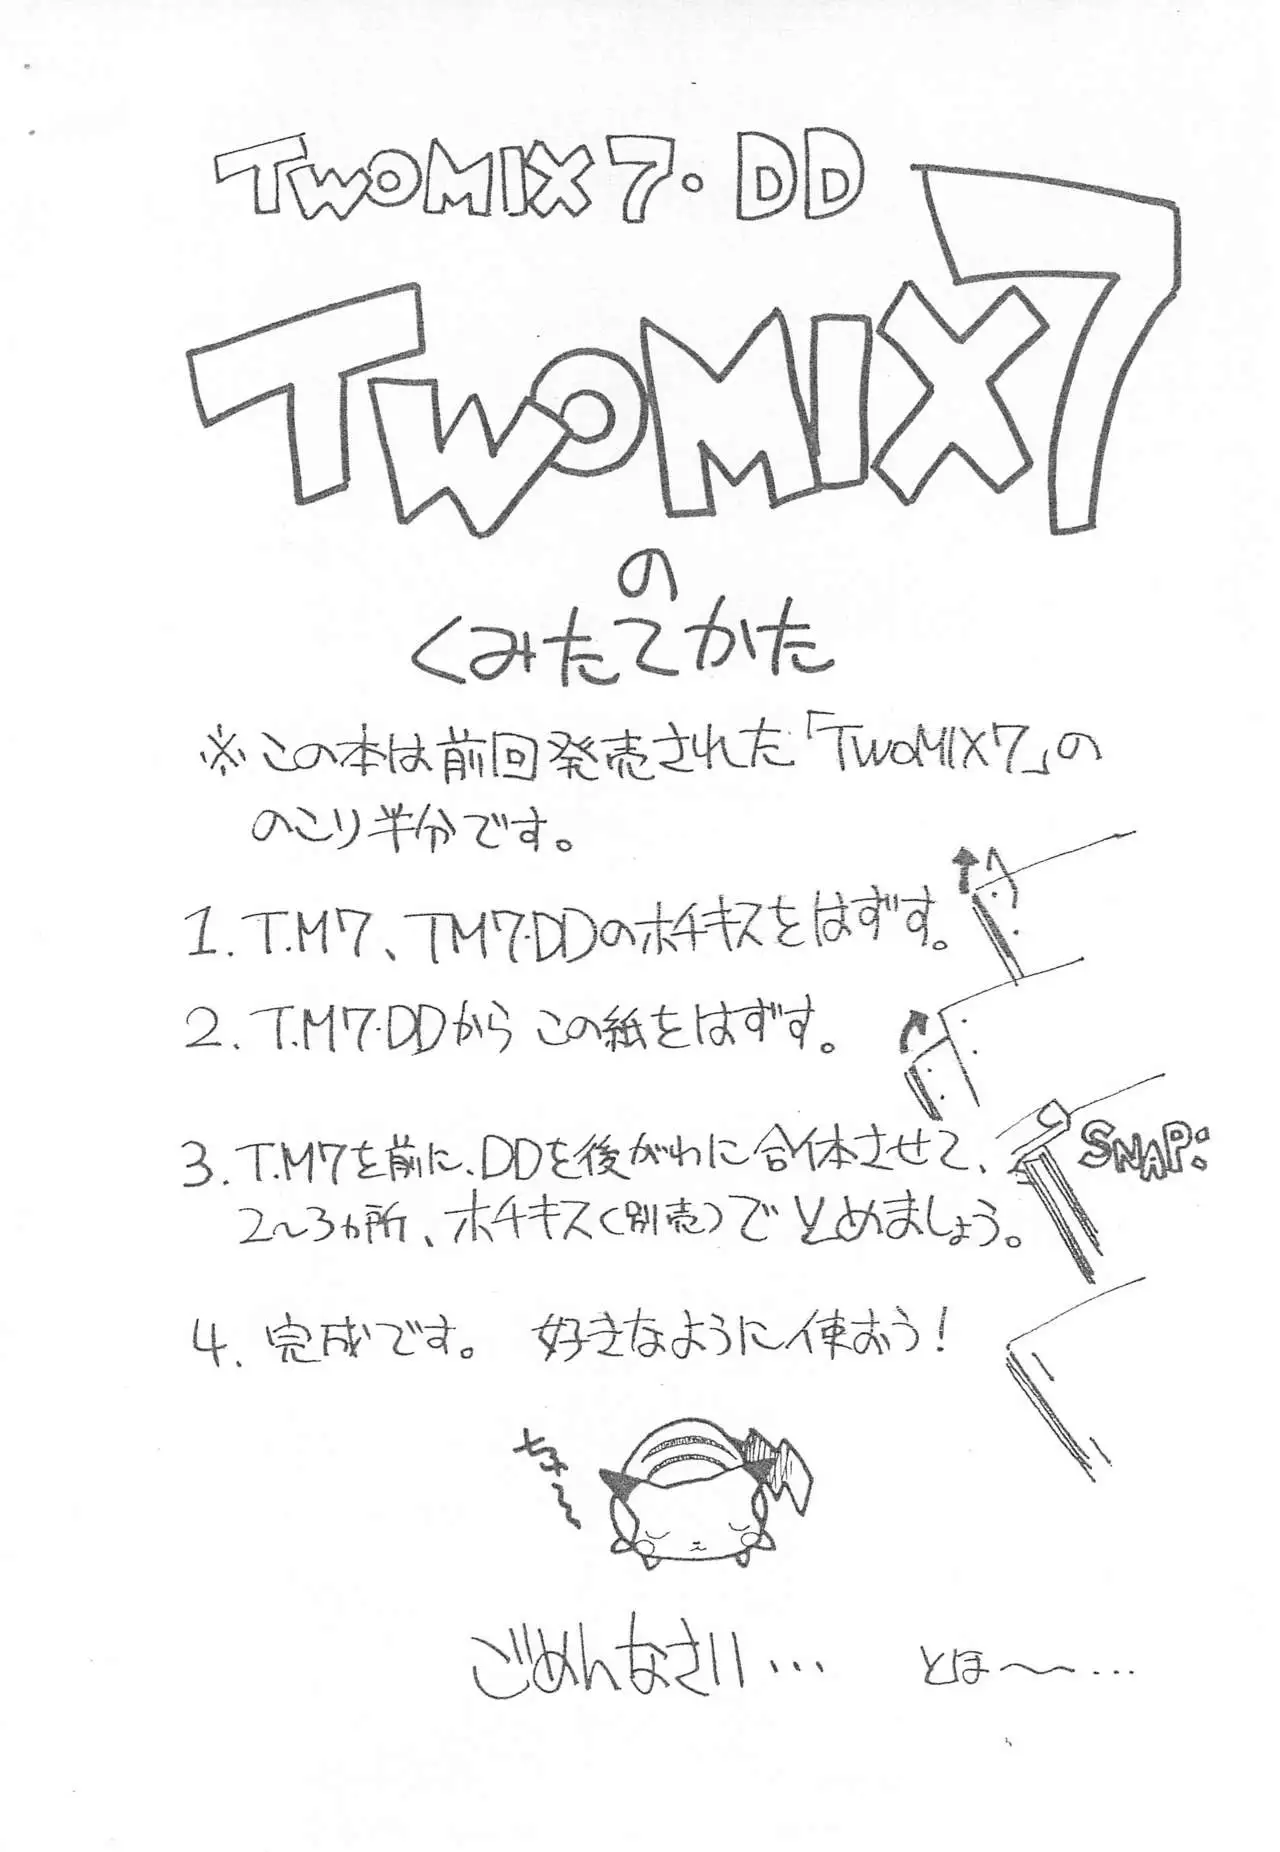 TWOMIX7・DD
TWOMIX7
の
くみたてかた
※この本は前回発売された「TWOMIX7」の
のこり半分です。
1. T.M7、TM7・DDのホチキスをはずす。
2. T.M7・DDから この紙をはずす。
3. T.M7を前に、DDを後がわに合体させて、
2〜3ヵ所、ホチキス(別売)でとめましょう。
SNAP!
4. 完成です。 好きなように使おう!
ごめんなさい… とほ〜〜…